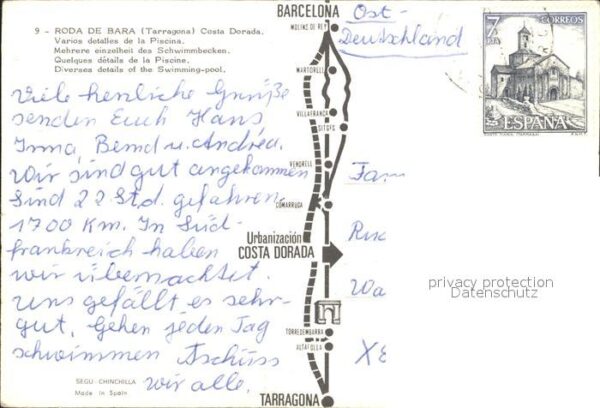 9 - RODA DE BARA (Tarragona) Costa Dorada.
Varios detalles de la Piscina.
Mehrere einzelheit des Schwimmbecken.
Quelques détails de la Piscine.
Diverses details of the Swimming-pool.
Viele herzliche Grüße
senden Euch Hans
Irma, Bernd u. Andréa.
Wir sind gut angekommen
Sind 22 Std. gefahren
1700 Km. In Süd-
frankreich haben
wir übernachtet.
Uns gefällt es sehr
gut. Gehen jeden Tag
schwimmen Tschüss
wir alle.
SEGU - CHINCHILLA
Made in Spain
BARCELONA
MOLINS DE REY
MARTORELL
VILLAFRANCA
SITGES
VENDRELL
COMARRUGA
Urbanización
COSTA DORADA
TORREDEMBARRA
ALTAFULLA
TARRAGONA
Ost-
Deutschland
7
PTA
CORREOS
ESPAÑA
Fam
Wa
privacy protection
Datenschutz